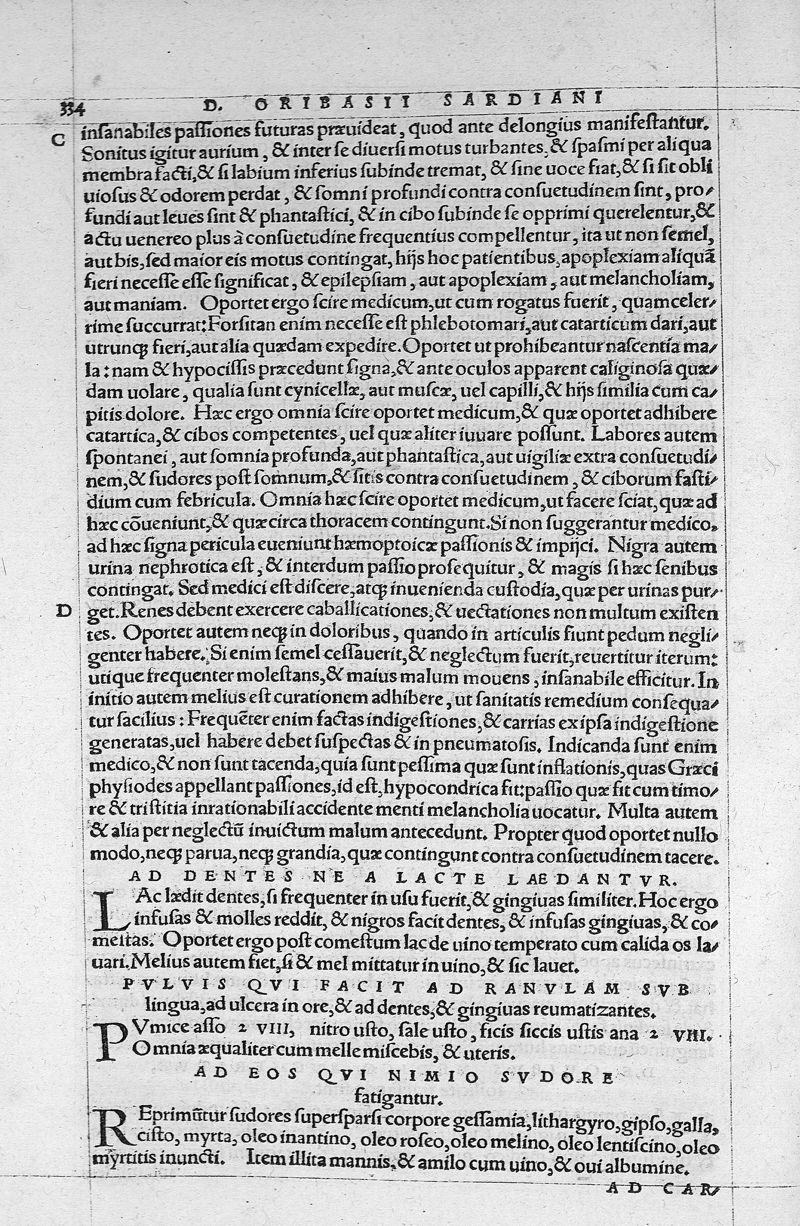 334 D. ORIBASII SARDIANI
C insanabiles passiones futuras præuideat, quod ante delongius manifestantur.
Sonitus igitur aurium, & inter se diuersi motus turbantes, & spasmi per aliqua
membra facti, & si labium inferius subinde tremat, & sine uoce fiat, & si sit obli
uiosus & odorem perdat, & somni profundi contra consuetudinem sint, pro/
fundi aut leues sint & phantastici, & in cibo subinde se opprimi querelentur, &
actu uenereo plus à consuetudine frequentius compellentur, ita ut non semel,
aut bis, sed maior eis motus contingat, hijs hoc patientibus, apoplexiam aliquã
fieri necesse esse significat, & epilepsiam, aut apoplexiam, aut melancholiam,
aut maniam. Oportet ergo scire medicum, ut cum rogatus fuerit, quamceler/
rime succurrat: Forsitan enim necesse est phlebotomari, aut catarticum dari, aut
utrunq; fieri, aut alia quædam expedire. Oportet ut prohibeantur nascentia ma/
la: nam & hypocissis præcedunt signa, & ante oculos apparent caliginosa quæ/
dam uolare, qualia sunt cynicellæ, aut muscæ, uel capilli, & hijs similia cum ca/
pitis dolore. Hæc ergo omnia scire oportet medicum, & quæ oportet adhibere
catartica, & cibos competentes, uel quæ aliter iuuare possunt. Labores autem
spontanei, aut somnia profunda, aut phantastica, aut uigiliæ extra consuetudi/
nem, & sudores post somnum, & sitis contra consuetudinem, & ciborum fasti/
dium cum febricula. Omnia hæc scire oportet medicum, ut facere sciat, quæ ad
hæc cõueniunt, & quæ circa thoracem contingunt. Si non suggerantur medico,
ad hæc signa pericula eueniunt hæmoptoicæ passionis & impijci. Nigra autem
urina nephrotica est, & interdum passio prosequitur, & magis si hæc senibus
contingat. Sed medici est discere, atq; inuenienda custodia, quæ per urinas pur/
D get. Renes debent exercere caballicationes, & uectationes non multum existen
tes. Oportet autem neq; in doloribus, quando in articulis fiunt pedum negli/
genter habere. Si enim semel cessauerit, & neglectum fuerit, reuertitur iterum:
utique frequenter molestans, & maius malum mouens, insanabile efficitur. In
initio autem melius est curationem adhibere, ut sanitatis remedium consequa/
tur facilius: Frequẽter enim factas indigestiones, & carrias ex ipsa indigestione
generatas, uel habere debet suspectas & in pneumatosis. Indicanda sunt enim
medico, & non sunt tacenda, quia sunt pessima quæ sunt inflationis, quas Græci
physiodes appellant passiones, id est, hypocondrica fit: passio quæ fit cum timo/
re & tristitia inrationabili accidente menti melancholia uocatur. Multa autem
& alia per neglectũ inuictum malum antecedunt. Propter quod oportet nullo
modo, neq; parua, neq; grandia, quæ contingunt contra consuetudinem tacere.
AD DENTES NE A LACTE LAEDANTVR.
LAc lædit dentes, si frequenter in usu fuerit, & gingiuas similiter. Hoc ergo
infusas & molles reddit, & nigros facit dentes, & infusas gingiuas, & co/
mestas. Oportet ergo post comestum lac de uino temperato cum calida os la/
uari. Melius autem fiet, si & mel mittatur in uino, & sic lauet.
PVLVIS QVI FACIT AD RANVLAM SVB
lingua, ad ulcera in ore, & ad dentes, & gingiuas reumatizantes.
PVmice asso 2 VIII, nitro usto, sale usto, ficis siccis ustis ana 2 VIII.
Omnia æqualiter cum melle miscebis, & uteris.
AD EOS QVI NIMIO SVDORE
fatigantur.
REprimũtur sudores supersparsi corpore gessamia, lithargyro, gipso, galla,
cisto, myrta, oleo inantino, oleo roseo, oleo melino, oleo lentiscino, oleo
myrtitis inuncti. Item illita mannis, & amilo cum uino, & oui albumine.
AD CAR/